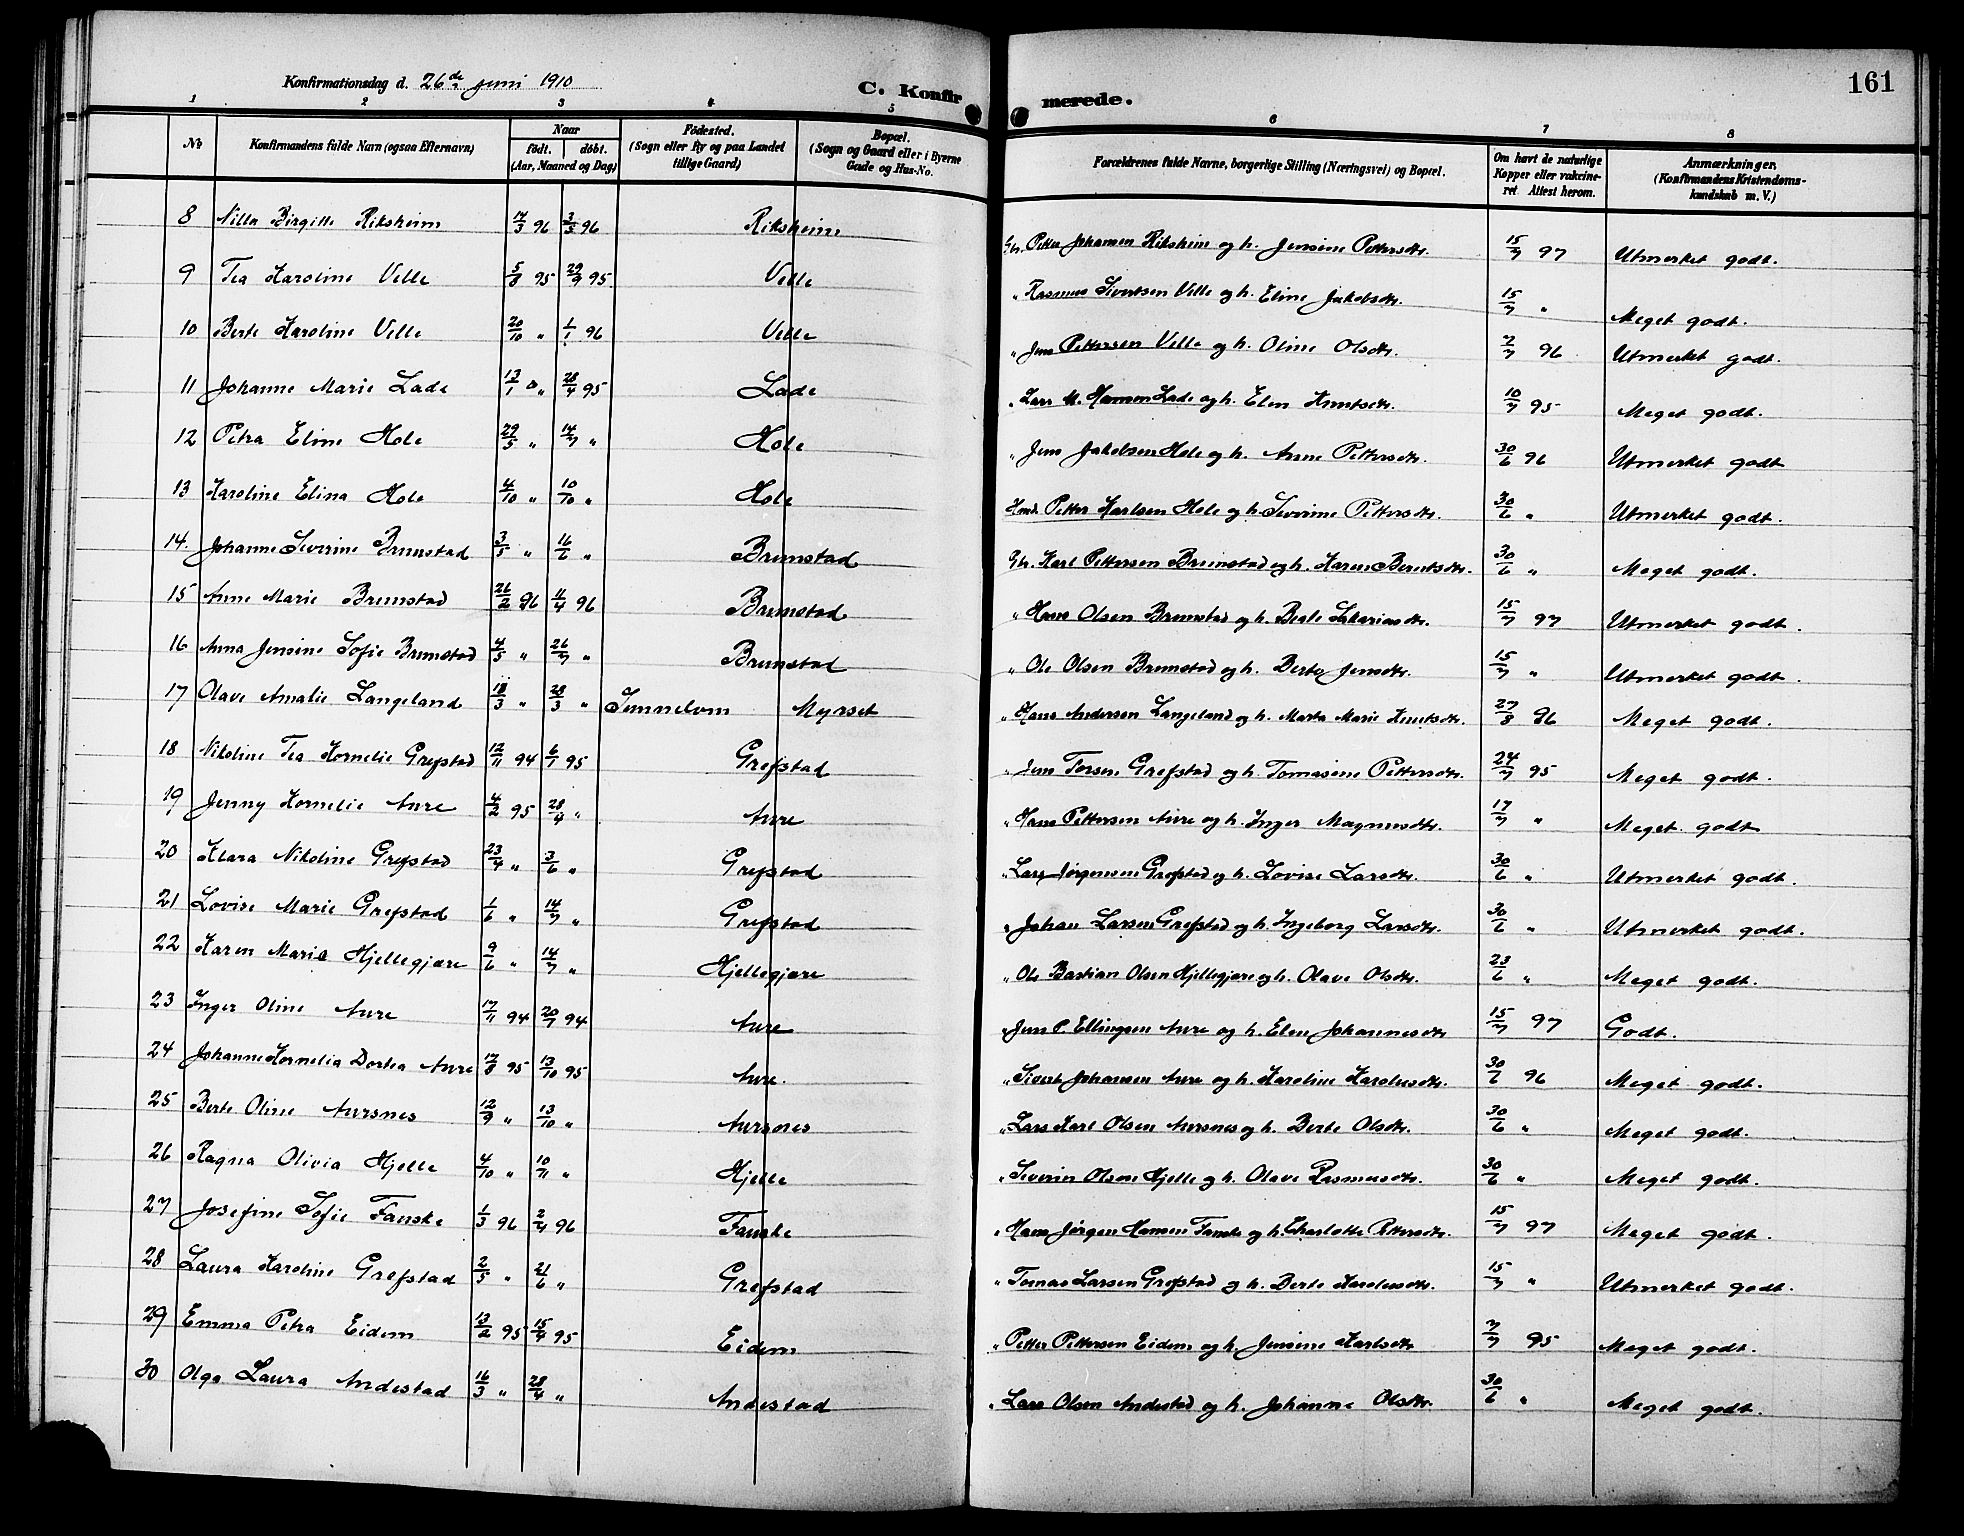 Konfirmationsdag d. 26de juni 1910
C. Konfirmerede.
161
1 2 3 4 5 6 7 8
No
Konfirmandens fulde Navn (ogsaa Efternavn)
Naar
født. døbt.
(Aar, Maaned og Dag)
Fødested.
(Sogn eller By og paa Landet
tillige Gaard)
Bopæl.
(Sogn og Gaard eller i Byerne
Gade og Hus-No.
Forældrenes fulde Navne, borgerlige Stilling (Næringsvei) og Bopæl.
Om havt de naturlige
Kopper eller vakcine-
ret. Attest herom.
Anmærkninger.
(Konfirmandens Kristendoms-
kundskab m. V.)
8 Nilla Birgitte Riksheim 14/3 96 3/5 96 Riksheim Gbr. Petter Johansen Riksheim og h. Jensine Pettersdtr. 15/7 97 Utmerket godt.
9 Tea Karoline Velle 5/8 95 29/9 95. Velle " Rasmus Sivertsen Velle og h. Eline Jakobsdtr. 15/7 " Meget godt.
10 Berte Karoline Velle 20/10 " 1/1 96 Velle " Jens Pettersen Velle og h. Oline Olsdtr. 7/7 96 Utmerket godt.
11 Johanne Marie Lade 13/1 " 28/4 95 Lade " Lars M. Hansen Lade og h. Elen Knutsdtr. 10/7 95 Meget godt.
12 Petra Eline Hole 29/5 " 14/7 " Hole " Jens Jakobsen Hole og h. Anne Pettersdtr. 30/6 96 Utmerket godt
13 Karoline Elina Hole 4/10 " 10/10 " Hole Petter Karlsen Hole og h. Severine Pettersdtr. 30/6 " Utmerket godt.
14. Johanne Severine Brunstad 3/5 " 16/6 " Brunstad Gbr. Karl Pettersen Brunstad og h. Karen Berntsdtr. 30/6 " Meget godt.
15 Anne Marie Brunstad 26/2 96 11/4 96 Brunstad " Hans Olsen Brunstad og h. Beate Sakariasdtr. 15/7 97 Utmerket godt.
16 Anna Jensine Sofie Brunstad 4/5 " 26/7 " Brunstad " Ole Olsen Brunstad og h. Berte Jensdtr. 15/7 " Utmerket godt.
17 Olave Amalie Langeland 18/3 " 28/3 " Sunnelven Myrset " Hans Andersen Langeland og h. Marta Marie Knutsdtr. 27/8 96 Meget godt.
18 Nikoline Tea Kornelie Grefstad 12/11 94 6/1 95 Grefstad " Jens Torsen Grefstad og h. Tomasine Pettersdtr. 24/7 95 Meget godt.
19 Jenny Kornelie Aure 4/2 95 28/4 " Aure " Hans Pettersen Aure og h. Inger Magnusdtr. 17/7 " Meget godt
20 Klara Nikoline Grefstad 23/4 " 3/6 " Grefstad " Lars Jørgensen Grefstad og h. Lovise Larsdtr. 30/6 " Utmerket godt.
21 Lovise Marie Grefstad 1/6 " 14/7 " Grefstad " Johan Larsen Grefstad og h. Ingeborg Larsdtr. 30/6 " Utmerket godt.
22 Karen Marie Hjellegjære 9/6 " 14/7 " Hjellegjære " Ole Bastian Olsen Hjellegjære og h. Olave Olsdtr. 23/6 " Meget godt.
23 Inger Oline Aure 17/11 94 20/7 94 Aure " Jens P. Ellingsen Aure og h. Elen Johannesdtr 15/7 97 Godt.
24 Johanne Kornelia Dortea Aure 17/8 95 13/10 95 Aure. " Sivert Johansen Aure og h. Karoline Karolusdtr. 30/6 96 Meget godt.
25 Berte Oline Aursnes 12/9 " 13/10 " Aursnes " Lars Karl Olsen Aursnes og h. Berte Olsdtr. 30/6 " Meget godt.
26 Ragna Olivia Hjelle 4/10 " 10/11 " Hjelle " Severin Olsen Hjelle og h. Olave Rasmusdtr. 30/6 " Meget godt.
27 Josefine Sofie Fauske 1/3 96 2/4 96 Fauske " Hans Jørgen Hansen Fauske og h. Charlotte Pettersdtr. 15/7 97 Meget godt.
28 Laura Karoline Grefstad 2/5 " 21/6 " Grefstad " Tomas Larsen Grefstad og h. Berte Karolusdtr. 15/7 " Utmerket godt.
29 Emma Petra Eidem 13/2 95 15/4 95 Eidem " Petter Pettersen Eidem og h. Jensine Karlsdtr 7/7 95 Meget godt.
30 Olga Laura Andestad 16/3 " 28/4 " Andestad " Lars Olsen Andestad og h. Johanne Olsdtr. 30/6 " Meget godt.